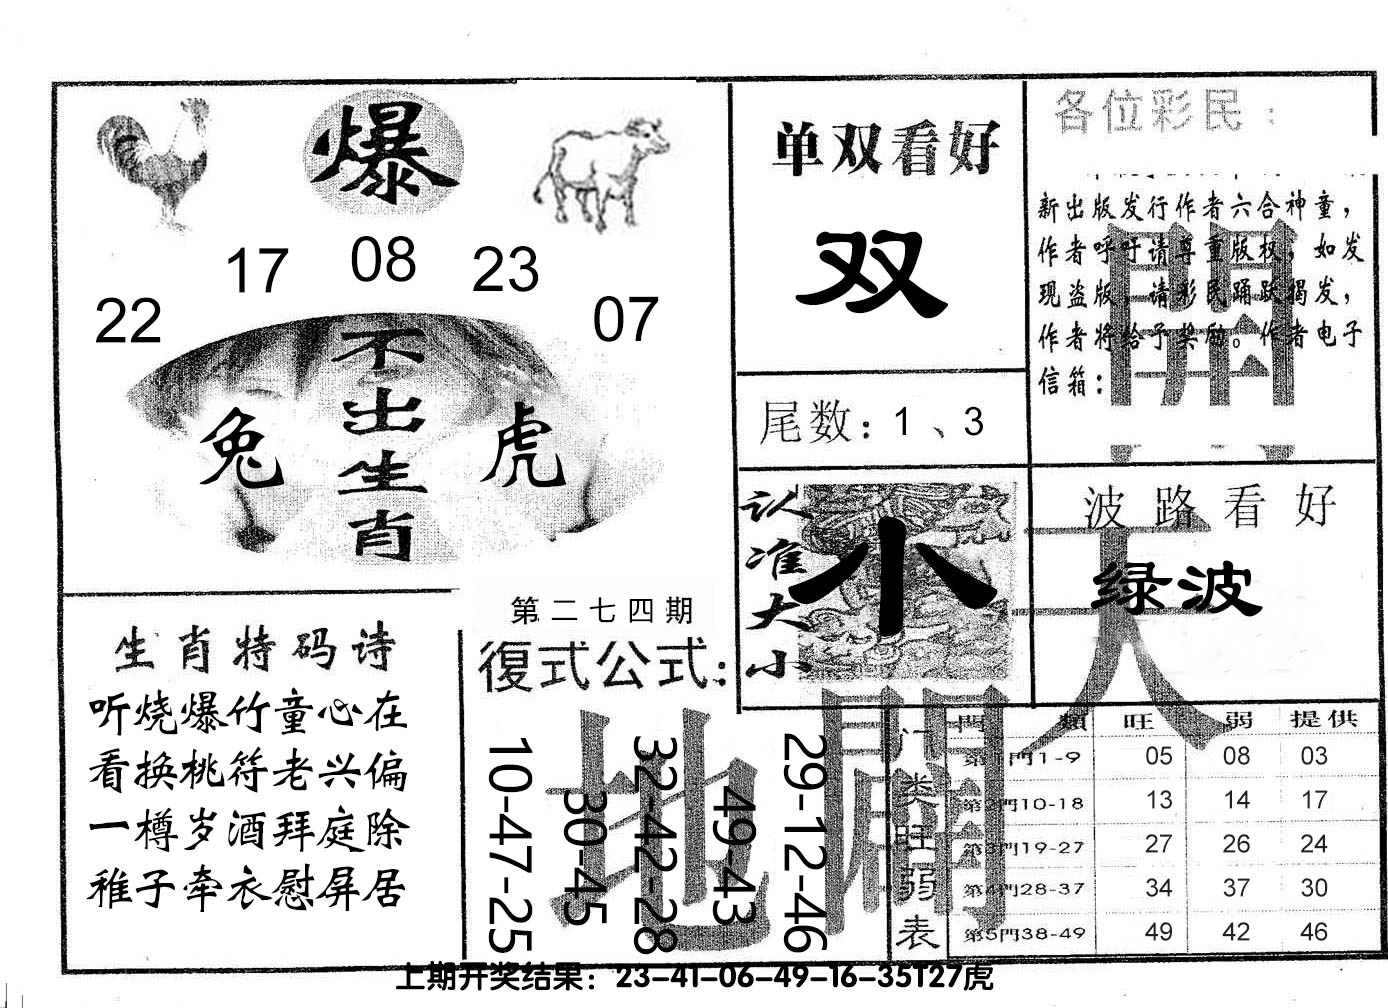 爆
17 08 23
22 07
不出生肖
兔 虎
单双看好
双
尾数：1、3
各位彩民：
新出版发行作者六合神童，
作者呼吁请尊重版权，如发
现盗版，请彩民踊跃揭发，
作者将给予奖励。作者电子
信箱：
認准大小
小
波路看好
绿波
生肖特码诗
听烧爆竹童心在
看换桃符老兴偏
一樽岁酒拜庭除
稚子牵衣慰屏居
第二七四期
復式公式：
10-47-25
30-45
32-42-28
49-43
29-12-46
天
地
開
門类旺弱表
門類 旺 弱 提供
第1門1-9 05 08 03
第2門10-18 13 14 17
第3門19-27 27 26 24
第4門28-37 34 37 30
第5門38-49 49 42 46
上期开奖结果：23-41-06-49-16-35T27虎